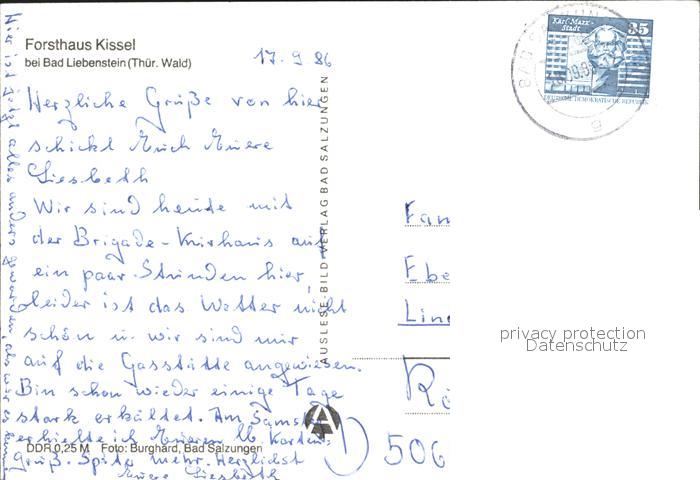 Forsthaus Kissel
bei Bad Liebenstein (Thür. Wald)
17.9 86
Herzliche Grüße von hier
schickt Euch Euere
Liesbeth
Wir sind heute mit
der Brigade-Kurhaus auf
ein paar Stunden hier
leider ist das Wetter nicht
schön u. wir sind nur
auf die Gasstätte angewiesen.
Bin schon wieder einige Tage
stark erkältet. Am Samstag
erhielte ich Eueren lb Karten-
gruß. Später mehr. Herzlichst
Euere Liesbeth
Hier ist jetzt alles anders geworden, als wir es
DDR 0,25 M Foto: Burghard, Bad Salzungen
AUSLESE-BILD-VERLAG BAD SALZUNGEN
A
Karl-Marx-
Stadt
35
DEUTSCHE DEMOKRATISCHE REPUBLIK
BAD
Fam
Ebe
Lin
506
privacy protection
Datenschutz